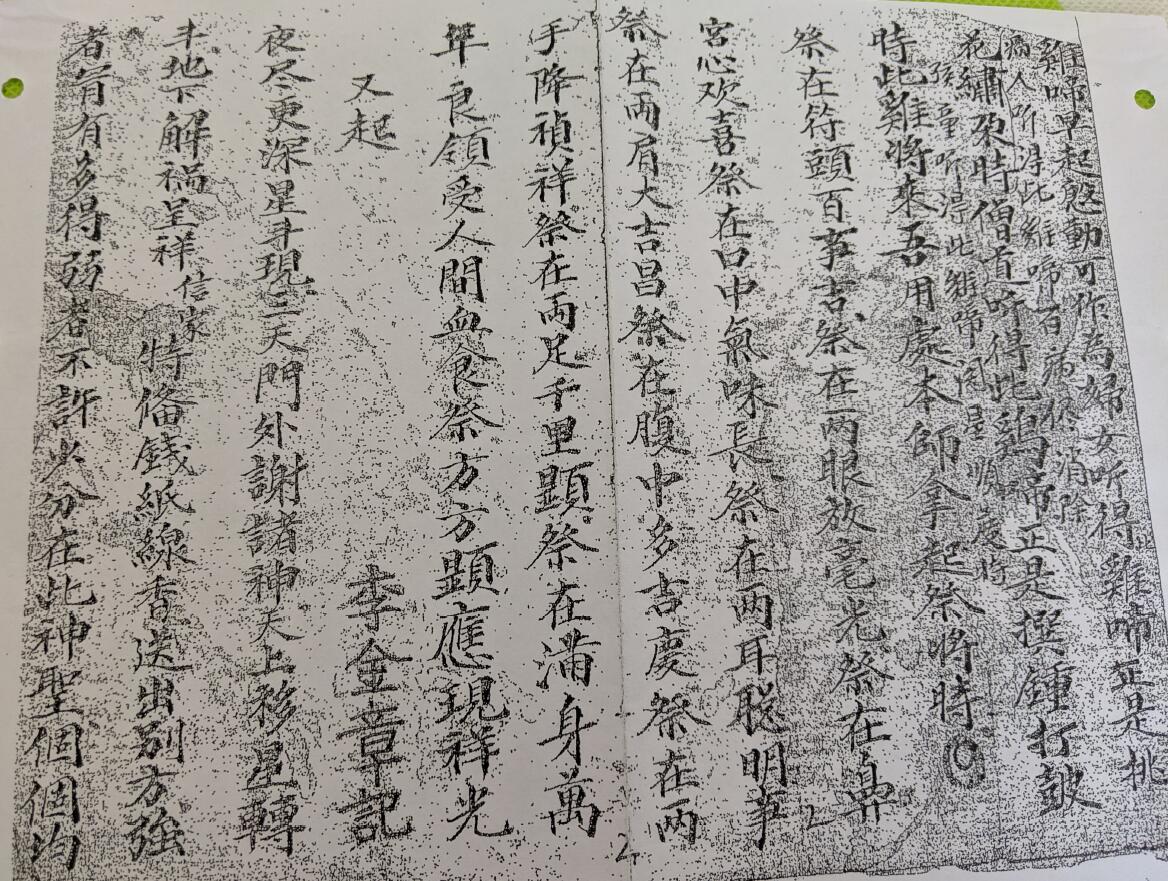 雞啼早起慇動可作為婦女听得雞啼正是挑
花繡朶時僧道听得比鷄啼正是撰鍾打皷
病人听淂比雞啼百病終消除
孩童听淂此雞啼関星順度将
時此雞將來吾用處本師拿起祭將時〇
祭在符頭百事吉祭在兩眼放毫光祭在鼻
宮心欢喜祭在口中氣味長祭在兩耳聡明事
祭在兩肩大吉昌祭在腹中多吉慶祭在兩
手降禎祥祭在兩足千里顕祭在滿身萬
年良領受人間血食祭方方顕應現祥光
又起
李金章記
夜尽更深星斗現三天門外謝諸神天上移星轉
斗地下解禍呈祥信家特俻錢紙線香送出別方強
者有多得弱者不許少分在此神聖個個均
2
2